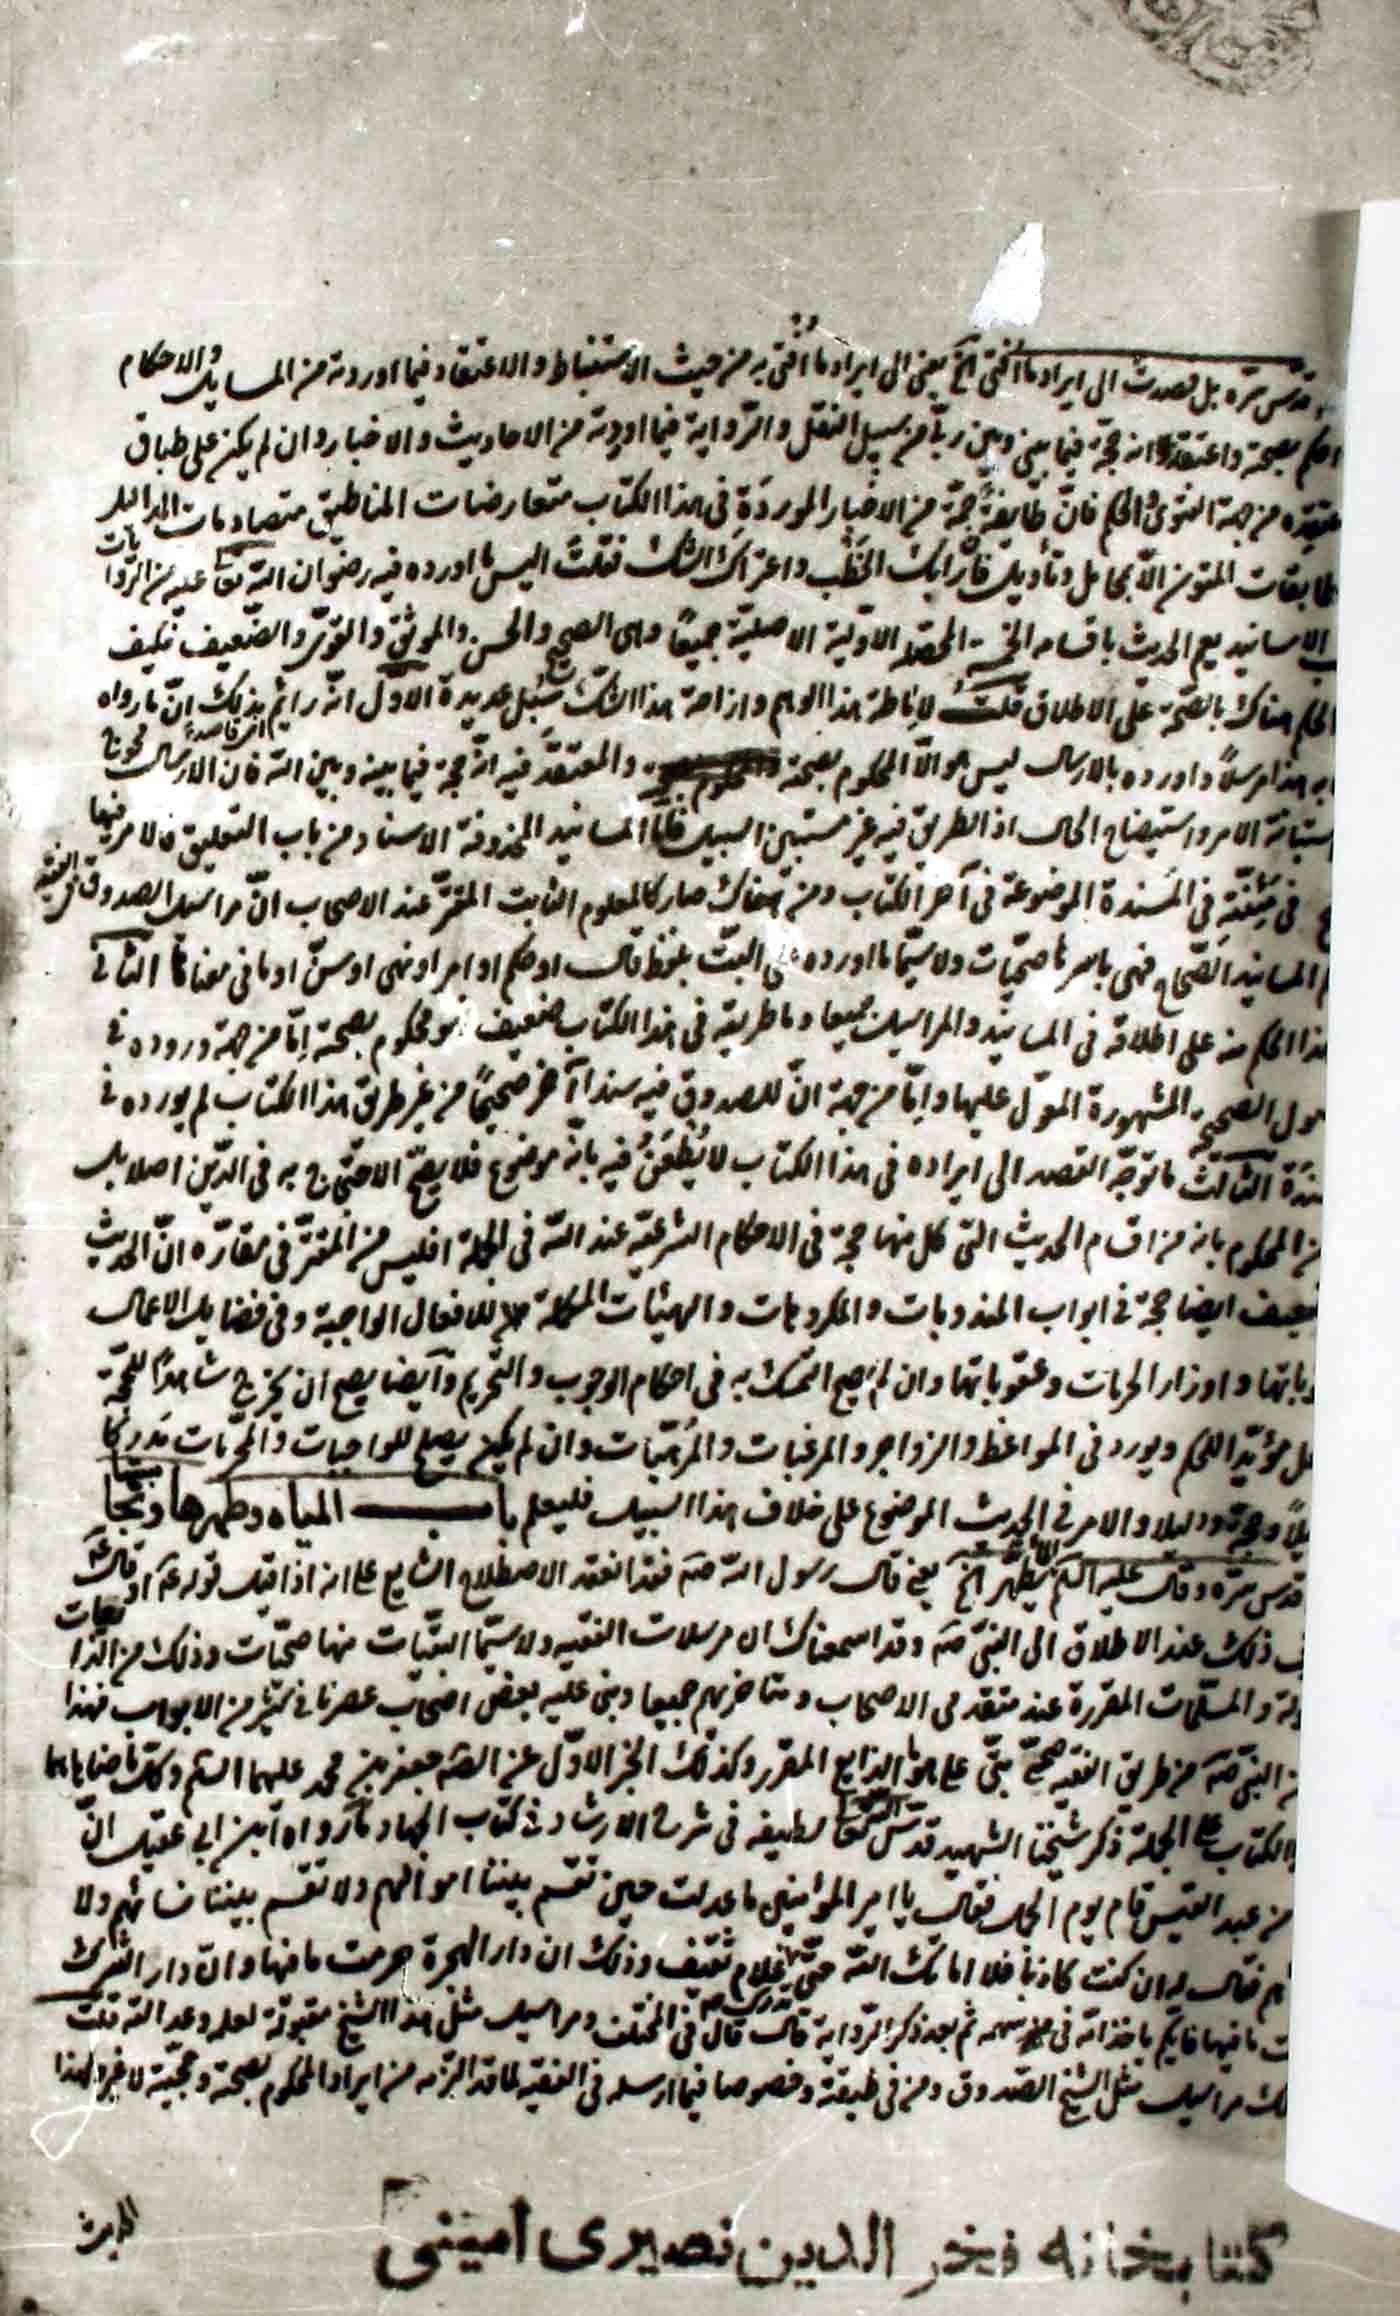 قدس سره بل قصدت الى ايراد ما افتى الخ يعنى الى ايراد ما افتى به من حيث الاستنباط والاعتقاد فيما اوردته من المسايل والاحكام
احكم بصحته واعتقد انه حجة فيما بينى وبين ربى من سبيل النقل والرواية فيما اوردته من الاحاديث والاخبار وان لم يكن على طباق
من جهة الفتوى والحكم فان طايفة جمة من الاخبار الموردة فى هذا الكتاب متعارضات المناطيق متصادمات المداليل
المتون الا بمحامل وتأويل فان رابك الخطب واعتراك الشك فقلت اليس ما اورده فيه رضوان الله تعالى عليه من الروايات
الاسانيد يعم الحديث باقسامه الخمسة المحصلة الاولية الاصلية جميعا وهى الصحيح والحسن والموثق والقوى والضعيف فكيف
الحكم هناك بالصحة على الاطلاق قلت لاماطة هذا الوهم وازاحة هذا الشك سبل عديدة الاول انه رائم بذلك ان ما رواه
هذا مرسلا واورده بالارسال ليس هو الا المحكوم بصحته والمعتقد فيه انه حجة فيما بينه وبين الله فان الارسال محوج
استبانة الامر واستيضاح الحال اذ الطريق فيه غير مستبين السبيل فاما المسانيد المحذوفة الاسناد من باب التعليق فالامر فيها
فى المسندة الموضوعة فى آخر الكتاب ومن هناك صار كالمعلوم الثابت المقرر عند الاصحاب ان مراسيل الصدوق فى الفقيه
المسانيد الصحاح فهى باسرها صحيات ولا سيما ما اورده على البت بلفظ قال او حكم او امر او نهى او سن او ما فى معناها الثانى
هذا الحكم منه على اطلاقه فى المسانيد والمراسيل جميعا وما طريقه فى هذا الكتاب ضعيف فهو محكوم بصحته اما من جهة وروده فى
الصحيحة المشهورة المعول عليها واما من جهة ان للصدوق فيه سندا آخر صحيحا من غير طريق هذا الكتاب لم يورده فى
الثالث ما توجه القصد الى ايراده فى هذا الكتاب لا يطعن فيه بانه موضوع فلا يصح الاحتجاج به فى الدين اصلا بل
المحكوم بانه من اقسام الحديث التى كل منها حجة فى الاحكام الشرعية عند الله فى الجملة افليس من المقرر فى مقاره ان الحديث
ايضا حجة فى ابواب المندوبات والمكروهات والهيئات المكملة للافعال الواجبة وفى فضايل الاعمال
واوزار الحرمات وعقوباتها وان لم يصح التمسك به فى احكام الوجوب والتحريم وايضا يصح ان يخرج شاهدا للحجة
مؤيدا للحكم ويورد فى المواعظ والزواجر والمرغبات والمرهبات وان لم يكن يصلح للواجبات والمحرمات مدركا
وحجة ودليلا والامر فى الحديث الموضوع على خلاف هذا السبيل فليعلم باب المياه وطهرها ونجاستها
قدس سره وقال عليه السلم يطهر الخ يعنى قال رسول الله صم فقد انعقد الاصطلاح الشايع على انه اذا قيل قوله عم او قال عم
ذلك عند الاطلاق الى النبى صم وقد اسمعناك ان مرسلات الفقيه ولا سيما البتيات منها صحيات وذلك من الذايعات
والمسلمات المقررة عند متقدمى الاصحاب ومتاخريهم جميعا وبنى عليه بعض اصحاب عصرنا فى كثير من الابواب فهذا
النبى صم من طريق الفقيه صحى على ما هو الذايع المقرر وكذلك الخبر الاول عن الصم جعفر بن محمد عليهما السلم وكل ما ضاهاهما
الكتاب على الجملة ذكر شيخنا الشهيد قدس الله تعالى لطيفه فى شرح الارشاد فى كتاب الجهاد ما رواه ابن ابى عقيل ان
من عبد القيس قام يوم الجمل فقال يا امير المؤمنين ما عدلت حين تقسم بيننا اموالهم ولا تقسم بيننا نسائهم ولا
فقال له ان كنت كاذبا فلا اماتك الله حتى تدرك غلام ثقيف وذلك ان دار الهجرة حرمت ما فيها وان دار الشرك
ما فيها فايكم ياخذ امه فى سهمه ثم بعد ذكر الرواية قال قال فى المختلف ومراسيل مثل هذا الشيخ مقبولة لعلمه وعدالته قلت
مراسيل مثل الشيخ الصدوق ومن فى طبقته وخصوصا فيما ارسله فى الفقيه لما قد التزمه من ايراد المحكوم بصحته وحجيته لا غير ولهذا
كتابخانه فخر الدين نصيرى امينى